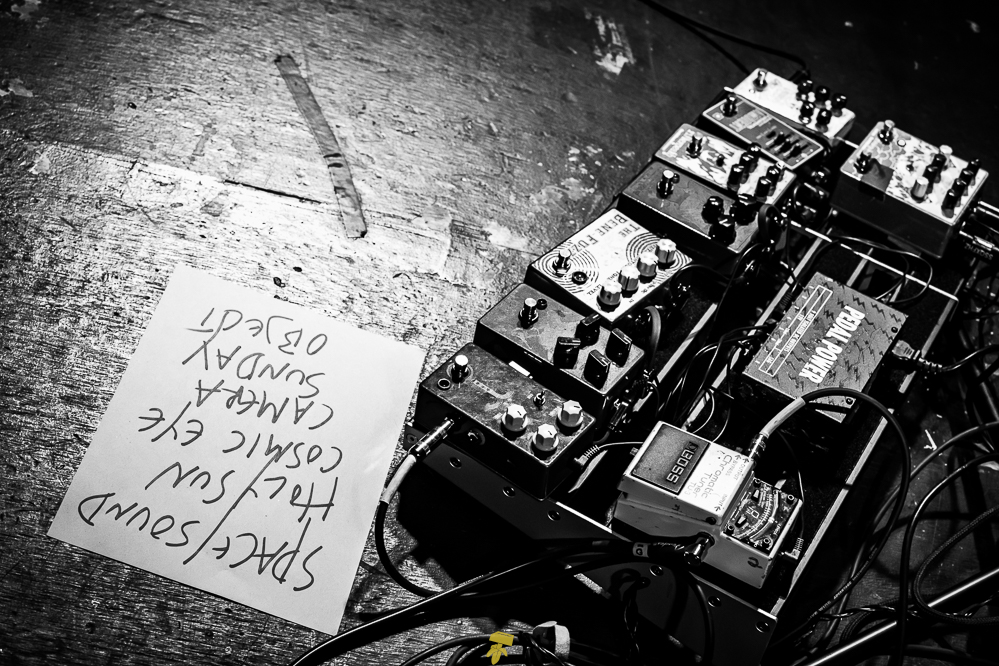 SPACE/SOUND
HOLY SUN
COSMIC EYE
CAMERA
SUNDAY
OBJECT
THE
BENE FUZZ
PEDAL POWER
BOSS
Chromatic
Tuner